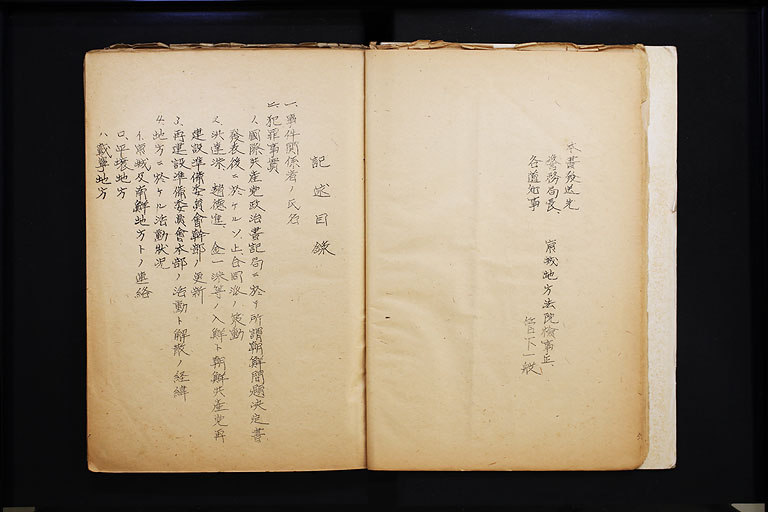 本書發送先
警務局長、京城地方法院檢事正、
各道知事 管下一般
記述目錄
一、事件關係者ノ氏名
二、犯罪事實
1、國際共産党政治書記局ニ於ケ所謂朝鮮問題決定書
發表後ニ於ケルソ、上、合同派ノ策動
2、趙德進、金一洙等ノ入鮮ト朝鮮共産党再
建設準備委員會幹部ノ更新
3、再建設準備委員會本部ノ活動ト解散ノ經緯
4、地方ニ於ケル活動狀況
イ、京城及南鮮地方トノ連絡
ロ、平壤地方
ハ、載寧地方